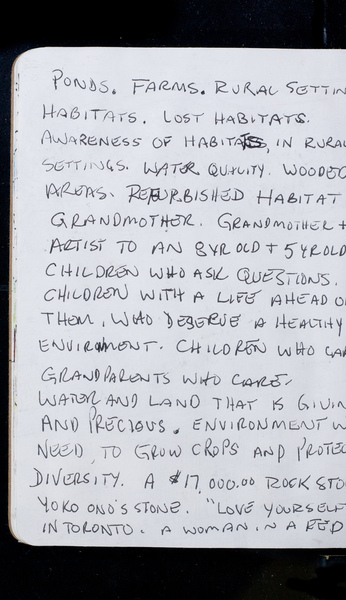 PONDS. FARMS. RURAL SETTIN
HABITATS. LOST HABITATS.
AWARENESS OF HABITATS, IN RURAL
SETTINGS. WATER QUALITY. WOODED
AREAS. REFURBISHED HABITAT
GRANDMOTHER. GRANDMOTHER +
ARTIST TO AN 8YR OLD + 5YROLD
CHILDREN WHO ASK QUESTIONS.
CHILDREN WITH A LIFE AHEAD O
THEM, WHO DESERVE A HEALTHY
ENVIRMENT. CHILDREN WHO CA
GRANDPARENTS WHO CARE.
WATER AND LAND THAT IS GIVIN
AND PRECIOUS. ENVIRONMENT W
NEED, TO GROW CROPS AND PROTEC
DIVERSITY. A $17,000.00 ROCK STO
YOKO ONO'S STONE. "LOVE YOURSELF
IN TORONTO. A WOMAN IN A RED